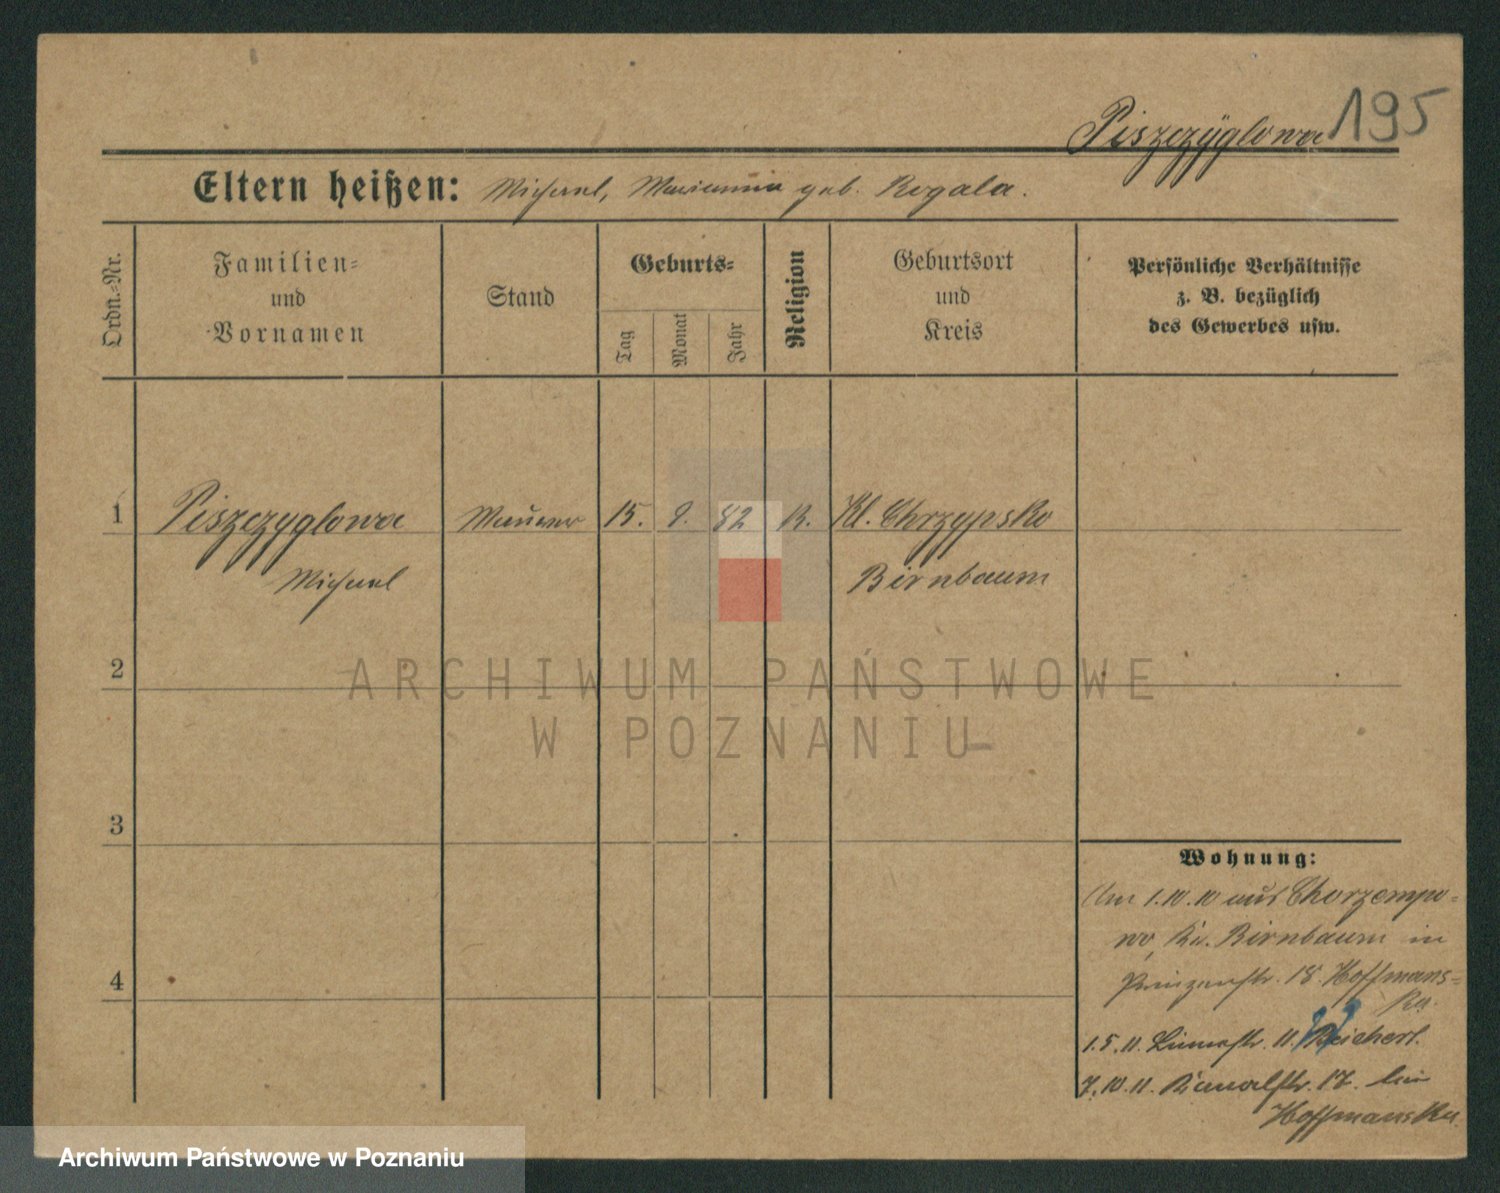 195
Piszczÿglowa
Eltern heißen: Michael, Marianna geb. Rogala.
Ordn.=Nr.
Familien=
und
Vornamen
Stand
Geburts=
Tag
Monat
Jahr
Religion
Geburtsort
und
Kreis
Persönliche Verhältnisse
z. B. bezüglich
des Gewerbes usw.
1 Piszczyglowa Maurer 15. 9. 82 K. Kl. Chrzypsko
Michael Birnbaum
2
3
4
Wohnung:
Am 1.10.10 aus Chorzempo-
wo, Kr. Birnbaum in
Prinzenstr. 18. Hoffmans-
1.5.11. 11. Reichert.
7.10.11. Kanalstr. 17. bei
Hoffmanska
ARCHIWUM PAŃSTWOWE
W POZNANIU
Archiwum Państwowe w Poznaniu